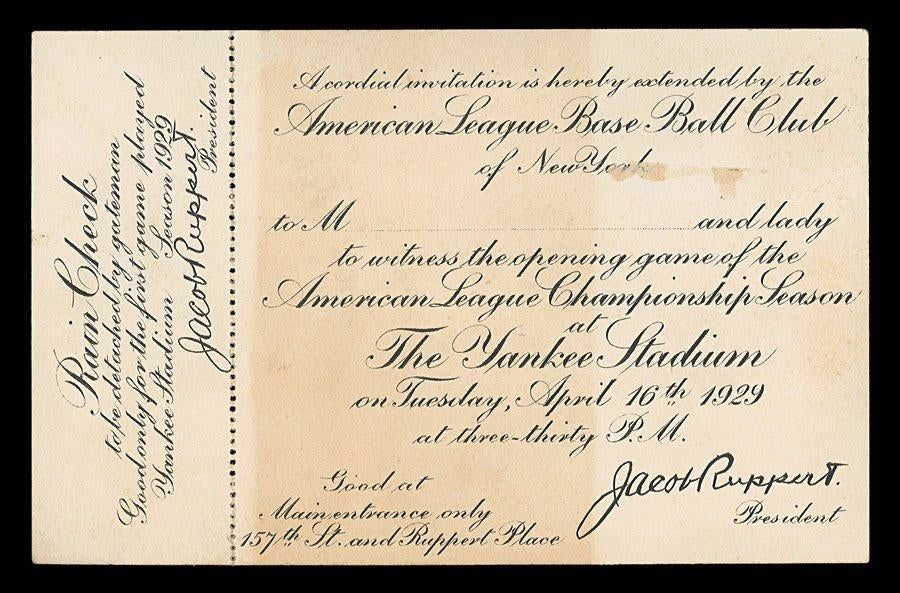 Rain Check
to be detached by gateman
Good only for the first game played
Yankee Stadium Season 1929
Jacob Ruppert.
President
A cordial invitation is hereby extended by the
American League Base Ball Club
of New York
to M and lady
to witness the opening game of the
American League Championship Season
at
The Yankee Stadium
on Tuesday, April 16th 1929
at three-thirty P.M.
Good at
Main entrance only
157th St. and Ruppert Place
Jacob Ruppert.
President